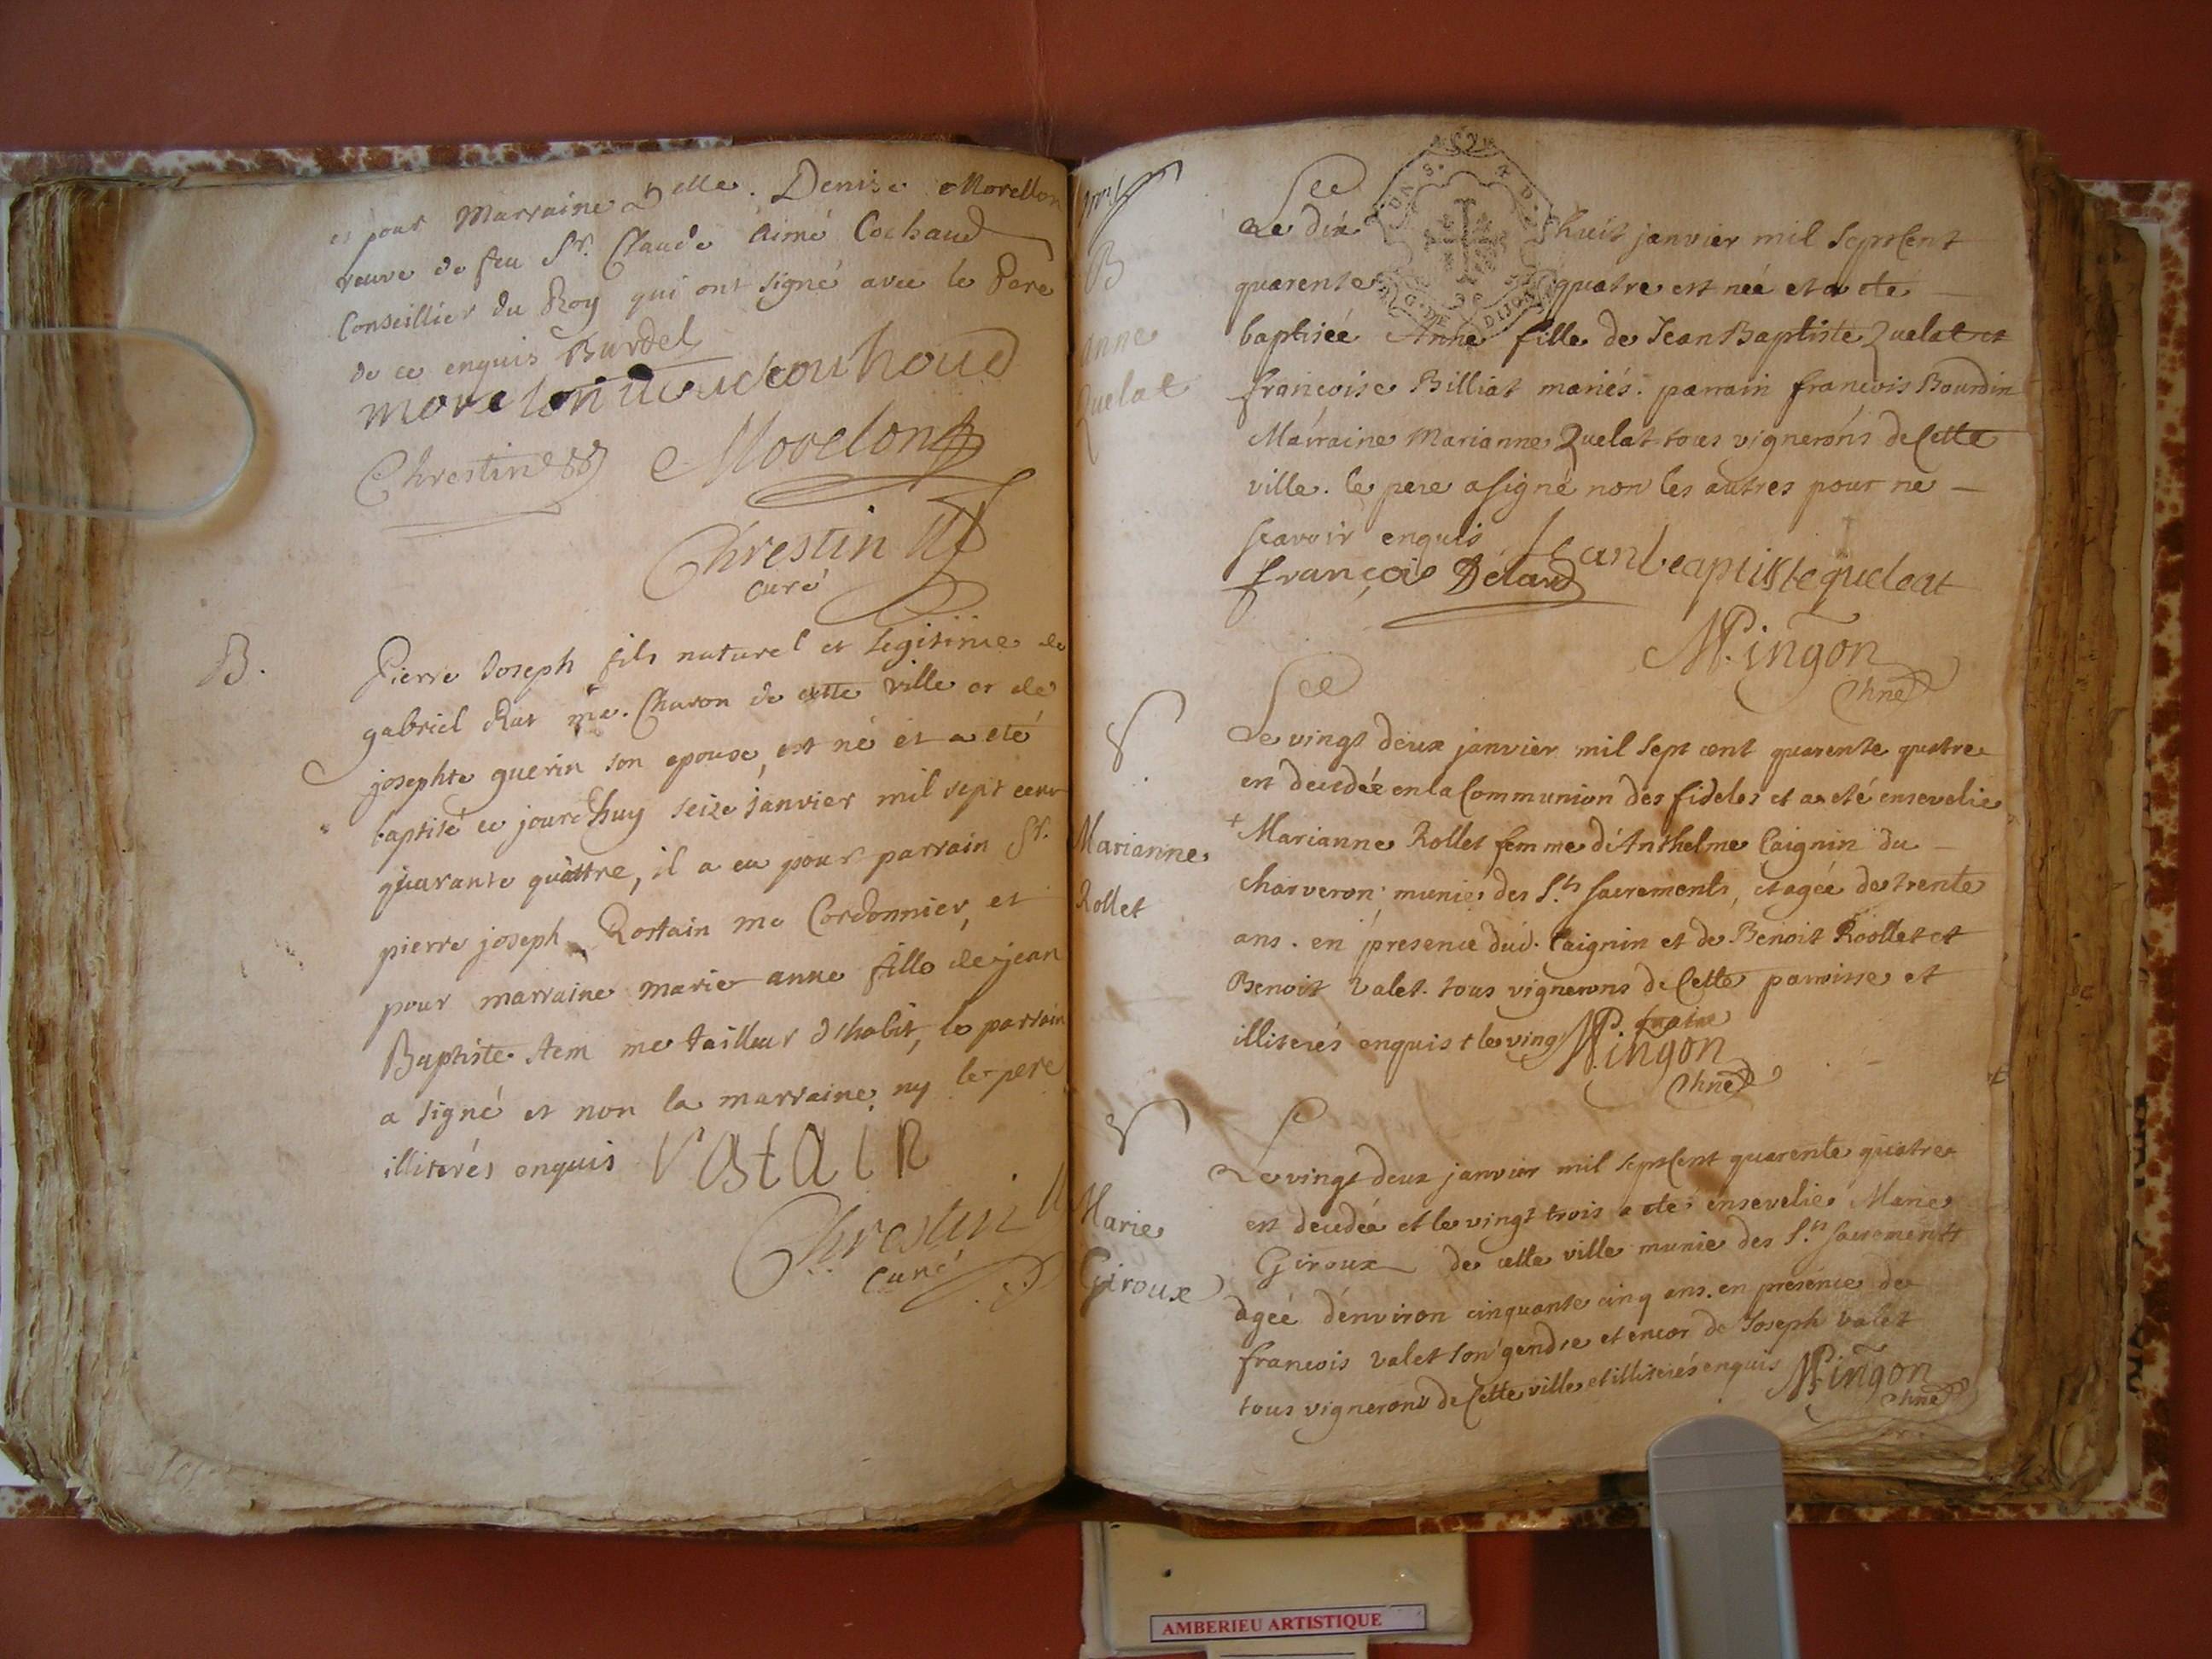 et pour Marraine Delle. Denise Morellon
veuve de feu Sr. Claude Aimé Cochaud
Conseillier du Roy qui ont signé avec le Pere
de ce enquis Burdel
Chrestin Morelon
Chrestin
curé
B.
Pierre Joseph fils naturel et legitime de
gabriel Rat me. Charon de cette ville et de
josephte guerin son epouse, est né et a eté
baptisé ce jourdhuy seize janvier mil sept cent
quarante quattre, il a eu pour parrain Sr.
pierre joseph Rostain me Cordonnier, et
pour marraine marie anne fille de jean
Baptiste Aem me tailleur d'habit, le parrain
a signé et non la marraine ny le pere
illiterés enquis rastain
Chrestin
curé
B
Anne
Quelat
Le dix huit janvier mil sept Cent
quarente quatre est neé et a ete
baptiseé Anne fille de Jean Baptiste Quelat et
francoise Billiat mariés. parrain francois Bourdin
Marraine Marianne Quelat tous vignerons de Cette
ville. le pere a signé non les autres pour ne
scavoir enquis jean beaptiste quelat
françois Délard
M. ingon
S
Marianne
Rollet
Le vingt deux janvier mil sept cent quarente quatre
est decedée en la Communion des fideles et a eté ensevelie
+ Marianne Rollet femme d'Anthelme Caignin du
charveron; munie des Sts sacrements, et agée de trente
ans. en presence dud. Caignin et de Benoit Roollet et
Benoit valet. tous vignerons de Cette parroisse et
illiterés enquis + le vingt
M. ingon
S
Marie
Giroux
Le vingt deux janvier mil sept Cent quarente quatre
est decedéa et le vingt trois a ete ensevelie Marie
Giroux de cette ville munie des Sts sacrements
ageé d'environ cinquante cinq ans. en presence de
francois valet son gendre et encor de Joseph valet
tous vignerons de Cette ville et illiterés enquis M. ingon
AMBERIEU ARTISTIQUE